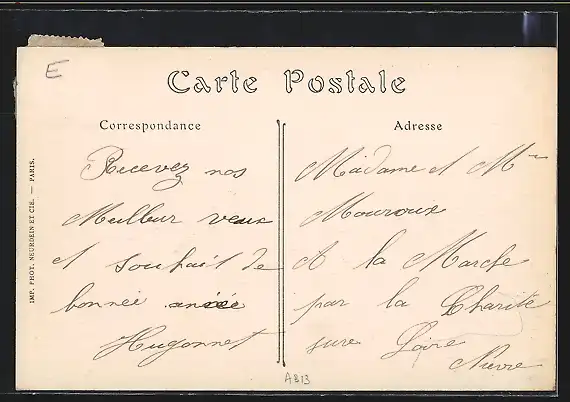 E
Carte Postale
Correspondance
Recevez nos
Meilleur veux
et souhait de
bonnée année
Hugonnet
Adresse
Madame et Mr
Mouroux
A la Marche
par la Charité
sure Loire
Nievre
IMP. PHOT. NEURDEIN ET CIE. — PARIS.
A813